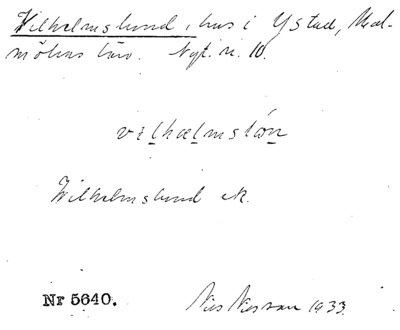 Wilhelmslund, hus i Ystad, Mal-
möhus län. Nyt. n. 10.
vɪlhælmslɵn
Wilhelmslund ek.
Nr 5640.
Nils Nilsson 1933.